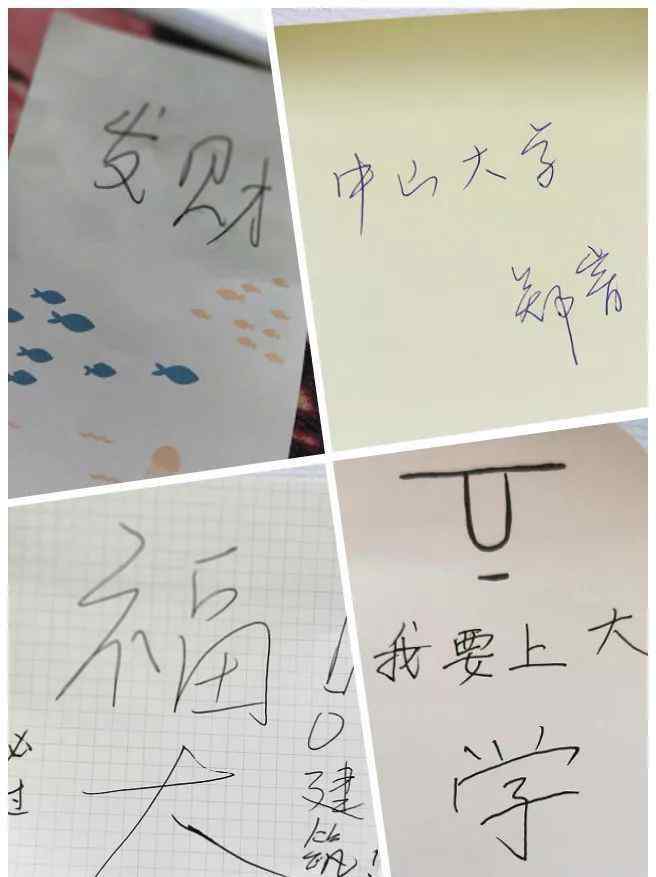 发财
中山大学
郑育
福
必过
大
建筑!
我要上大
学